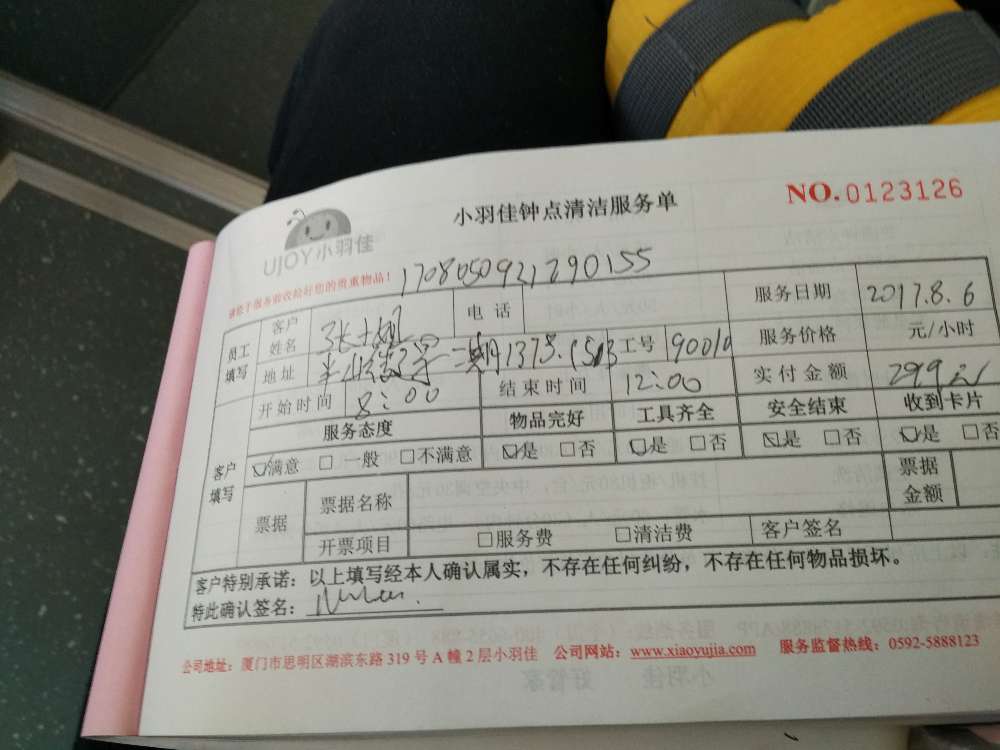 小羽佳钟点清洁服务单 NO.0123126
UJOY小羽佳
请您于服务前收捡好您的贵重物品! 1708050921290155
员工填写 客户姓名 张 电话 服务日期 2017.8.6
地址 工号 90010 服务价格 元/小时
开始时间 8:00 结束时间 12:00 实付金额 299元
客户填写 服务态度 物品完好 工具齐全 安全结束 收到卡片
☑满意 □一般 □不满意 ☑是 □否 ☑是 □否 ☑是 □否 ☑是 □否
票据 票据名称 票据金额
开票项目 □服务费 □清洁费 客户签名
客户特别承诺:以上填写经本人确认属实,不存在任何纠纷,不存在任何物品损坏。
特此确认签名:
公司地址:厦门市思明区湖滨东路 319 号 A 幢 2 层小羽佳 公司网站:www.xiaoyujia.com 服务监督热线:0592-5888123